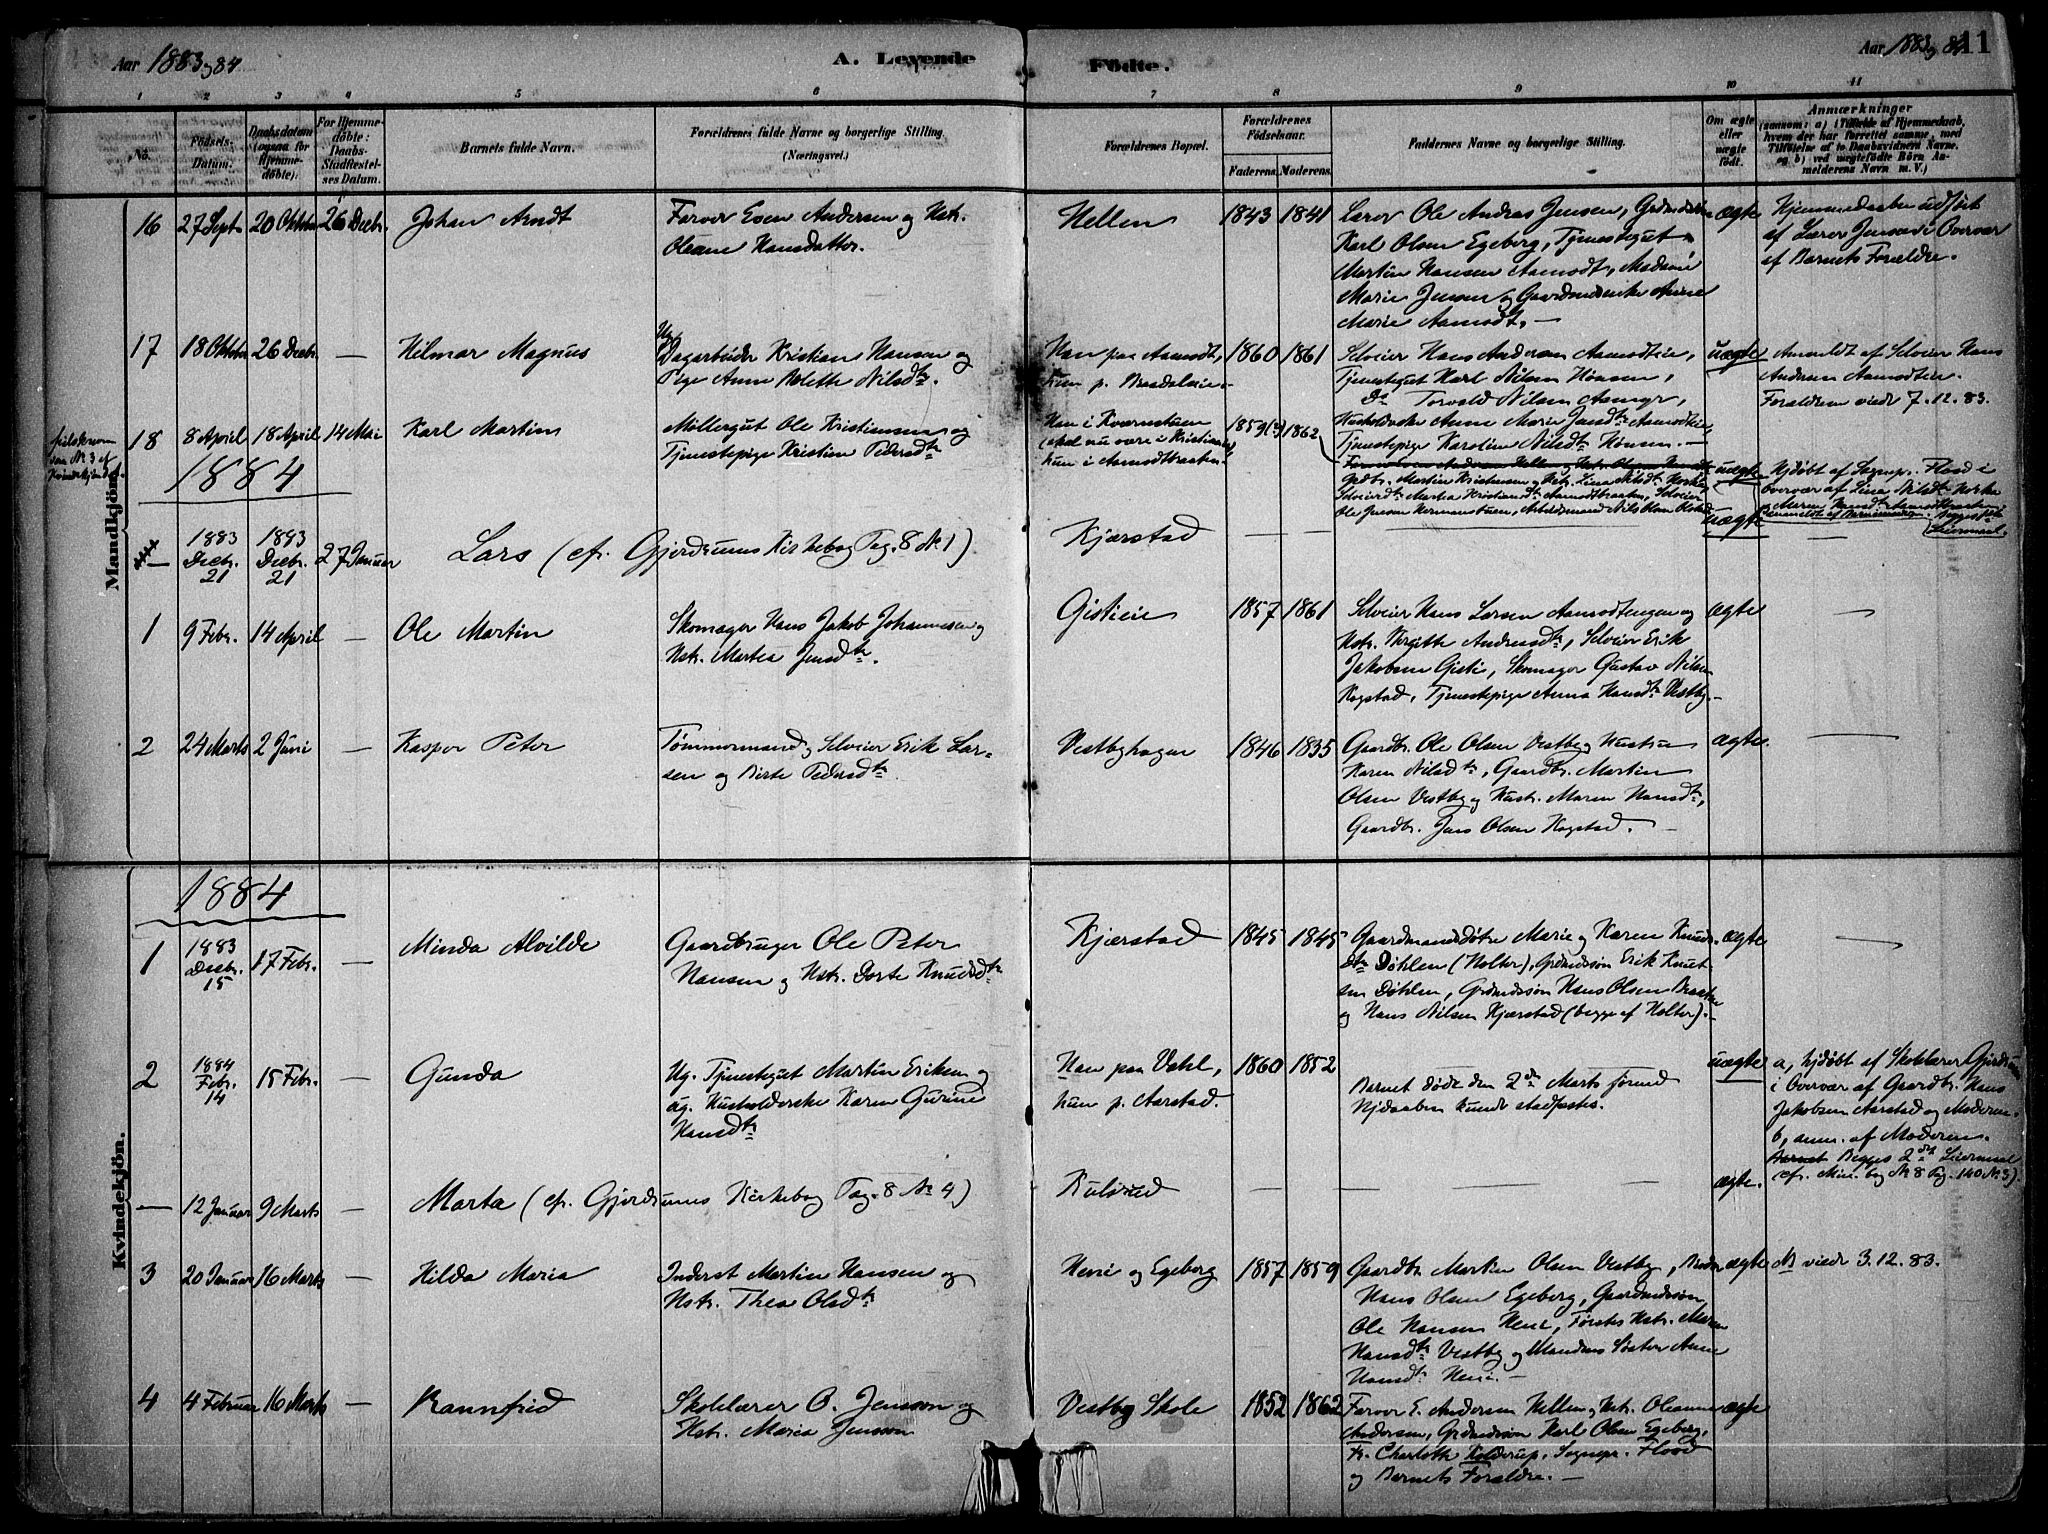 Aar 1883 og 84
A. Levende
Födte.
Aar 1883 og 84
11
1 2 3 4 5 6 7 8 9 10 11
No.
Födsels-
Datum.
Daabsdatum
(ogsaa for
Hjemme-
döbte).
For Hjemme-
döbte:
Daabs-
Stadfæstel-
ses Datum.
Barnets fulde Navn.
Forældrenes fulde Navne og borgerlige Stilling.
(Næringsvei.)
Forældrenes Bopæl.
Forældrenes
Födselsaar.
Faderens. Moderens.
Faddernes Navne og borgerlige Stilling.
Om ægte
eller
uægte
födt.
Anmærkninger
(saasom: a) i Tilfælde af Hjemmedaab,
hvem der har forrettet samme, med
Tilföielse af to Daabsvidners Navne.
og b) ved uægtefödte Börn An-
melderens Navn m. V.)
Mandkjön.
16 27 Sept 20 Oktober 26 Decbr. Johan Arndt
Farver Esen Andersen og Hstr.
Oleane Hansdatter.
Hellen 1843 1841
Lærer Ole Andreas Jensen,
Karl Olsen Egeberg, Tjenestegut
Martin Hansen Aamodt, Madame
Marie Jensen og Gaardmandsenke Anne
Marie Aamodt. —
ægte
Hjemmedaaben udført
af Lærer Jensen i Overvær
af Barnets Forældre.
17 18 Oktober 26 Decbr. — Hilmar Magnus
Ug.
Dagarbeider Kristian Hansen og
Pige Anne Bolette Nilsdtr.
Han paa Aamodt,
hun p.
1860 1861
Selveier Hans Andersen Aamodteie,
Tjenestegut Karl Nilsen Hønsen,
Do Torvald Nilsen
Husholderske Anne Marie Jensdtr. Aamodteie
Tjenestepige Karoline Nilsdtr. Hønsen. —
uægte
Anmeldt af Selveier Hans
Andersen Aamodteie.
Forældrene viede 7.12.83.
18 8 April 18 April 14 Mai Karl Martin
Møllergut Ole Kristiansen og
Tjenestepige Kristine Pedersdtr
Han i Kværnstuen
(skal nu være i Kristiania)
hun i Aamodtbraaten.
1859(?) 1862
Gdbr. Martin Kristiansen og Hstr. Lina Nilsdtr.
Selveierdtr. Martea Kristiansdtr. Aamodtbraaten, Selveier
Ole Jensen Hermanstuen, Arbeidsmand Nils Olsen
uægte
Hjdøbt af Sognepr. Flood i
overvær af Lina Nilsdtr.
1884
1883 Decbr. 21 1883 Decbr. 21 27 Januar
Lars (cfr. Gjerdrums Kirkebog Pag. 8 No 1)
Kjærstad — — uægte
1 9 Febr. 14 April — Ole Martin
Skomager Hans Jakob Johannessen og
Hstr. Martea Jensdtr.
Gistieie 1857 1861
Selveier Hans Larsen Aamodtengen og
Hstr. Birgitte Andreasdtr., Selveier Erik
Jakobsen Gisti, Skomager Gustav Nilsen
Kogstad, Tjenestepige Anna Hansdtr. Vestby. —
ægte —
2 24 Marts 2 Juni — Kasper Peter
Tømmermand og Selveier Erik Lar-
sen og Berte Pedersdtr.
Vestbyhagen 1846 1835
Gaardbr. Ole Olsen Vestby og Hustru
Karen Nilsdtr., Gaardbr. Martin
Olsen Vestby og Hustr. Maren Hansdtr.,
Gaardbr. Jens Olsen Kogstad. —
ægte. —
1884
Kvindekjön.
1 1883 Decbr. 15 17 Febr. — Minda Alvilde
Gaardbruger Ole Peter
Hansen og Hstr. Dorte Knudsdtr.
Kjærstad 1845 1845
Gaardmandsdøtre Marie og Karen Knuds-
dtr. Døhlen (Holter), Grdmdssøn Erik Knut-
sen Døhlen, Grdmdssøn Hans Olsen
og Hans Nilsen Kjærstad (begge af Holter). —
ægte —
2 1884 Febr. 14 15 Febr. — Gunda
Ug. Tjenestegut Martin Eriksen og
ug. Husholderske Karen Gurine
Hansdtr.
Han paa Vahl,
hun p. Aarstad.
1860 1852
Barnet døde den 2den Marts førend
Hjdaaben kunde stadfæstes.
uægte
a, hjdøbt af Skolelærer Gjerdrum
i Overvær af Gaardbr. Hans
Jakobsen Aarstad og Moderen.
b, anm. af Moderen.
Begges 2det Leiermaal
(cfr. Min. bog No 8 Pag. 140 No 3).
— 12 Januar 9 Marts —
Marta (cfr. Gjerdrums Kirkebog Pag. 8 No 4)
Kulsrud — — ægte.
3 20 Januar 16 Marts — Hilda Maria
Inderst Martin Hansen og
Hstr. Thea Olsdtr.
Henie og Egeberg 1857 1859
Gaardbr. Martin Olsen Vestby,
Hans Olsen Egeberg, Gaardmdssøn
Ole Hansen Henie, Førstes Hstr. Maren
Hansdtr. Vestby og Mandens Søster Anne
Hansdtr. Henie. —
ægte
viede 3.12.83.
4 4 Februar 16 Marts — Rannfrid
Skolelærer O. Jensson og
Hstr. Maria Jensson
Vestby Skole 1852 1862
Farver E. Andersen Hellen og Hstr. Oleanne
Andersen, Grdmdssøn Karl Olsen Egeberg,
Fr. Charlotte Kolderup, Sognepr. Flood
og Barnets Forældre. —
ægte —